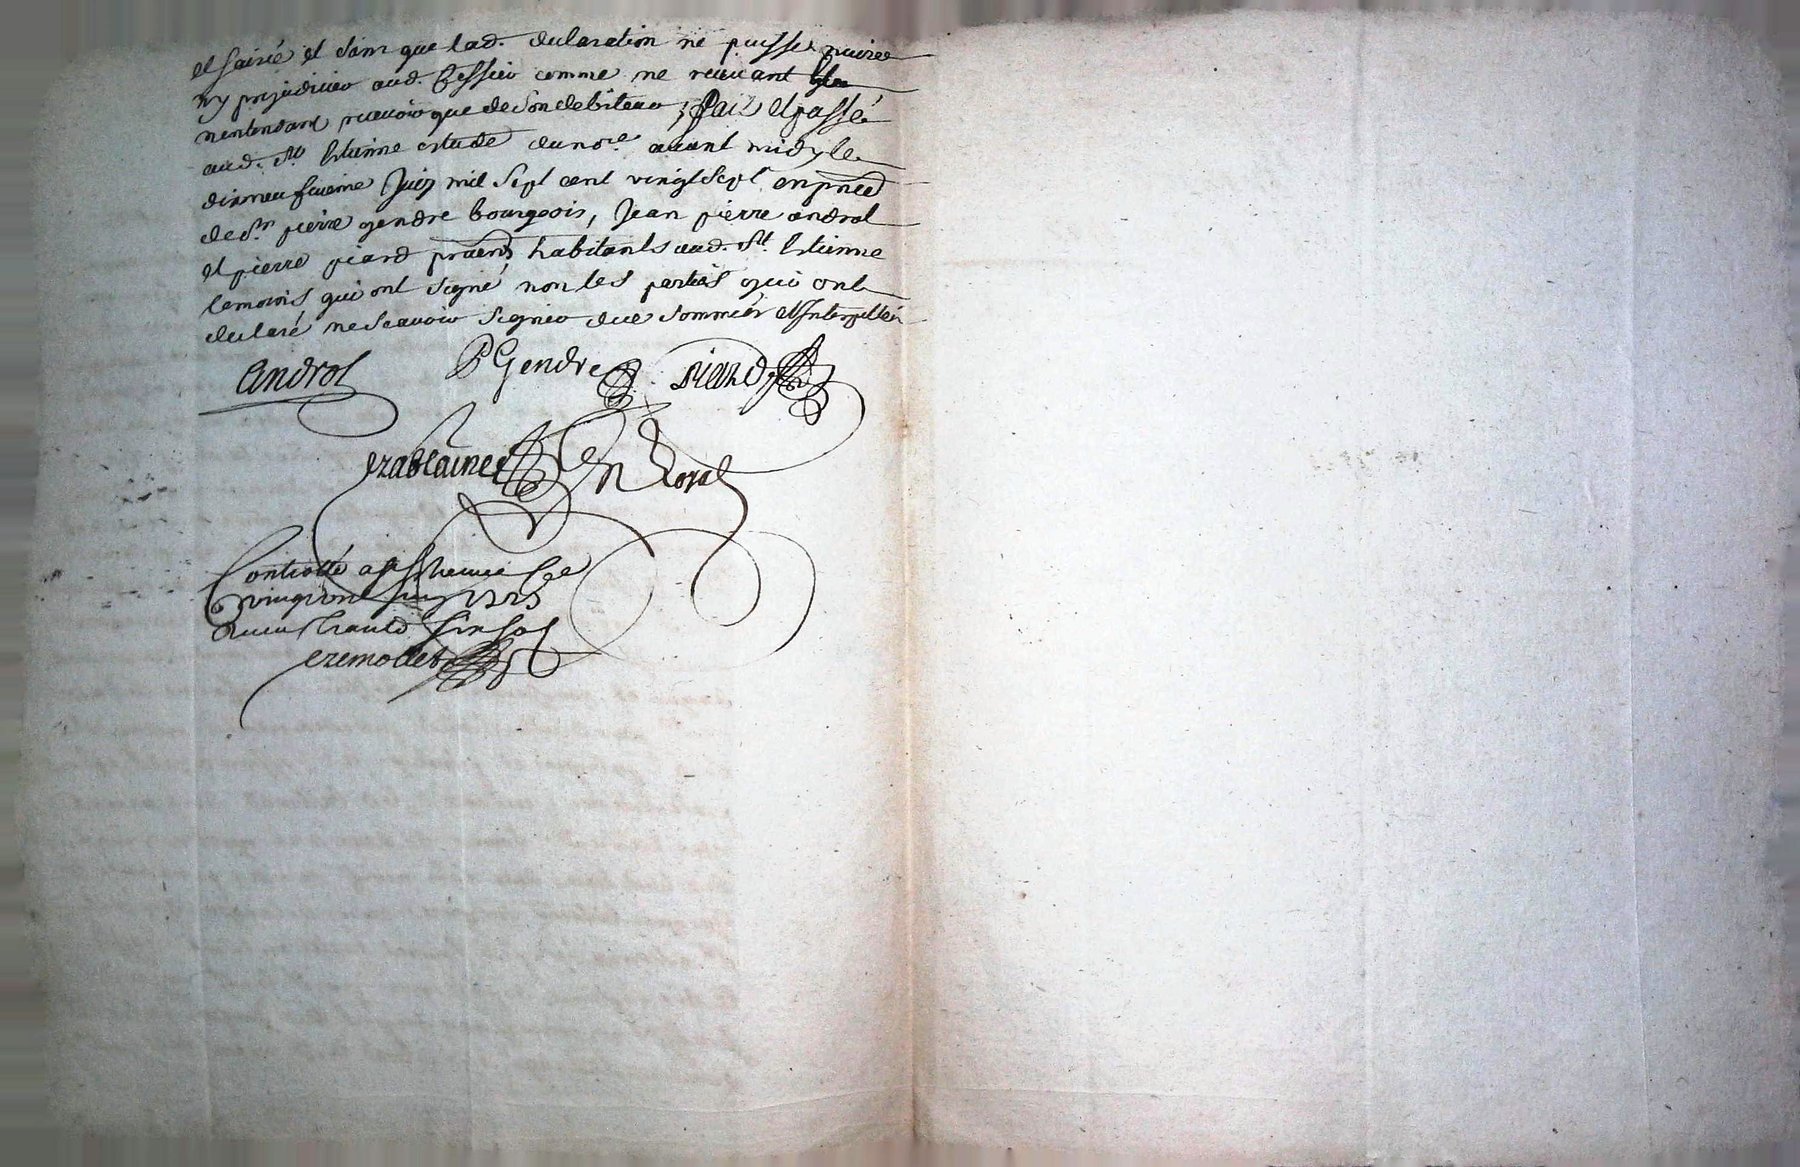 et sans que lad. declaration ne puisse nuire
ny prejudicier aud. Tessier comme ne recevant
nentendant recevoir que de son debiteur, fait et passé
aud. St Etienne estude du nore avant midy le
dixneufvieme Juin mil sept cent vingt sept en pnce
de Sr pierre gendre bourgeois, Jean pierre androl
et pierre piard praens habitants aud. St Etienne
temoins qui ont signé non les parties qui ont
declaré ne scavoir signer de ce sommés et Interpellés
Androl
P Gendre
piard
en Royal
Controllé a St Etienne le
vingt Juin 1727